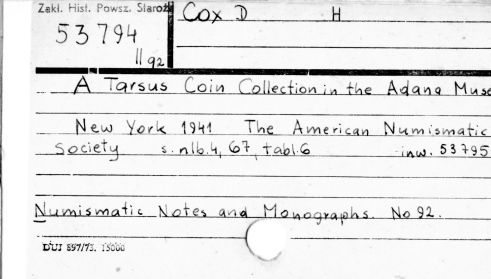 Zakł. Hist. Powsz. Staroż
53794
II 92
Cox D H
A Tarsus Coin Collection in the Adana Muse
New York 1941 The American Numismatic
Society s. nlb. 4, 67, tabl. 6 inw. 53795
Numismatic Notes and Monographs. No 92.
DUJ 897/73. 15000